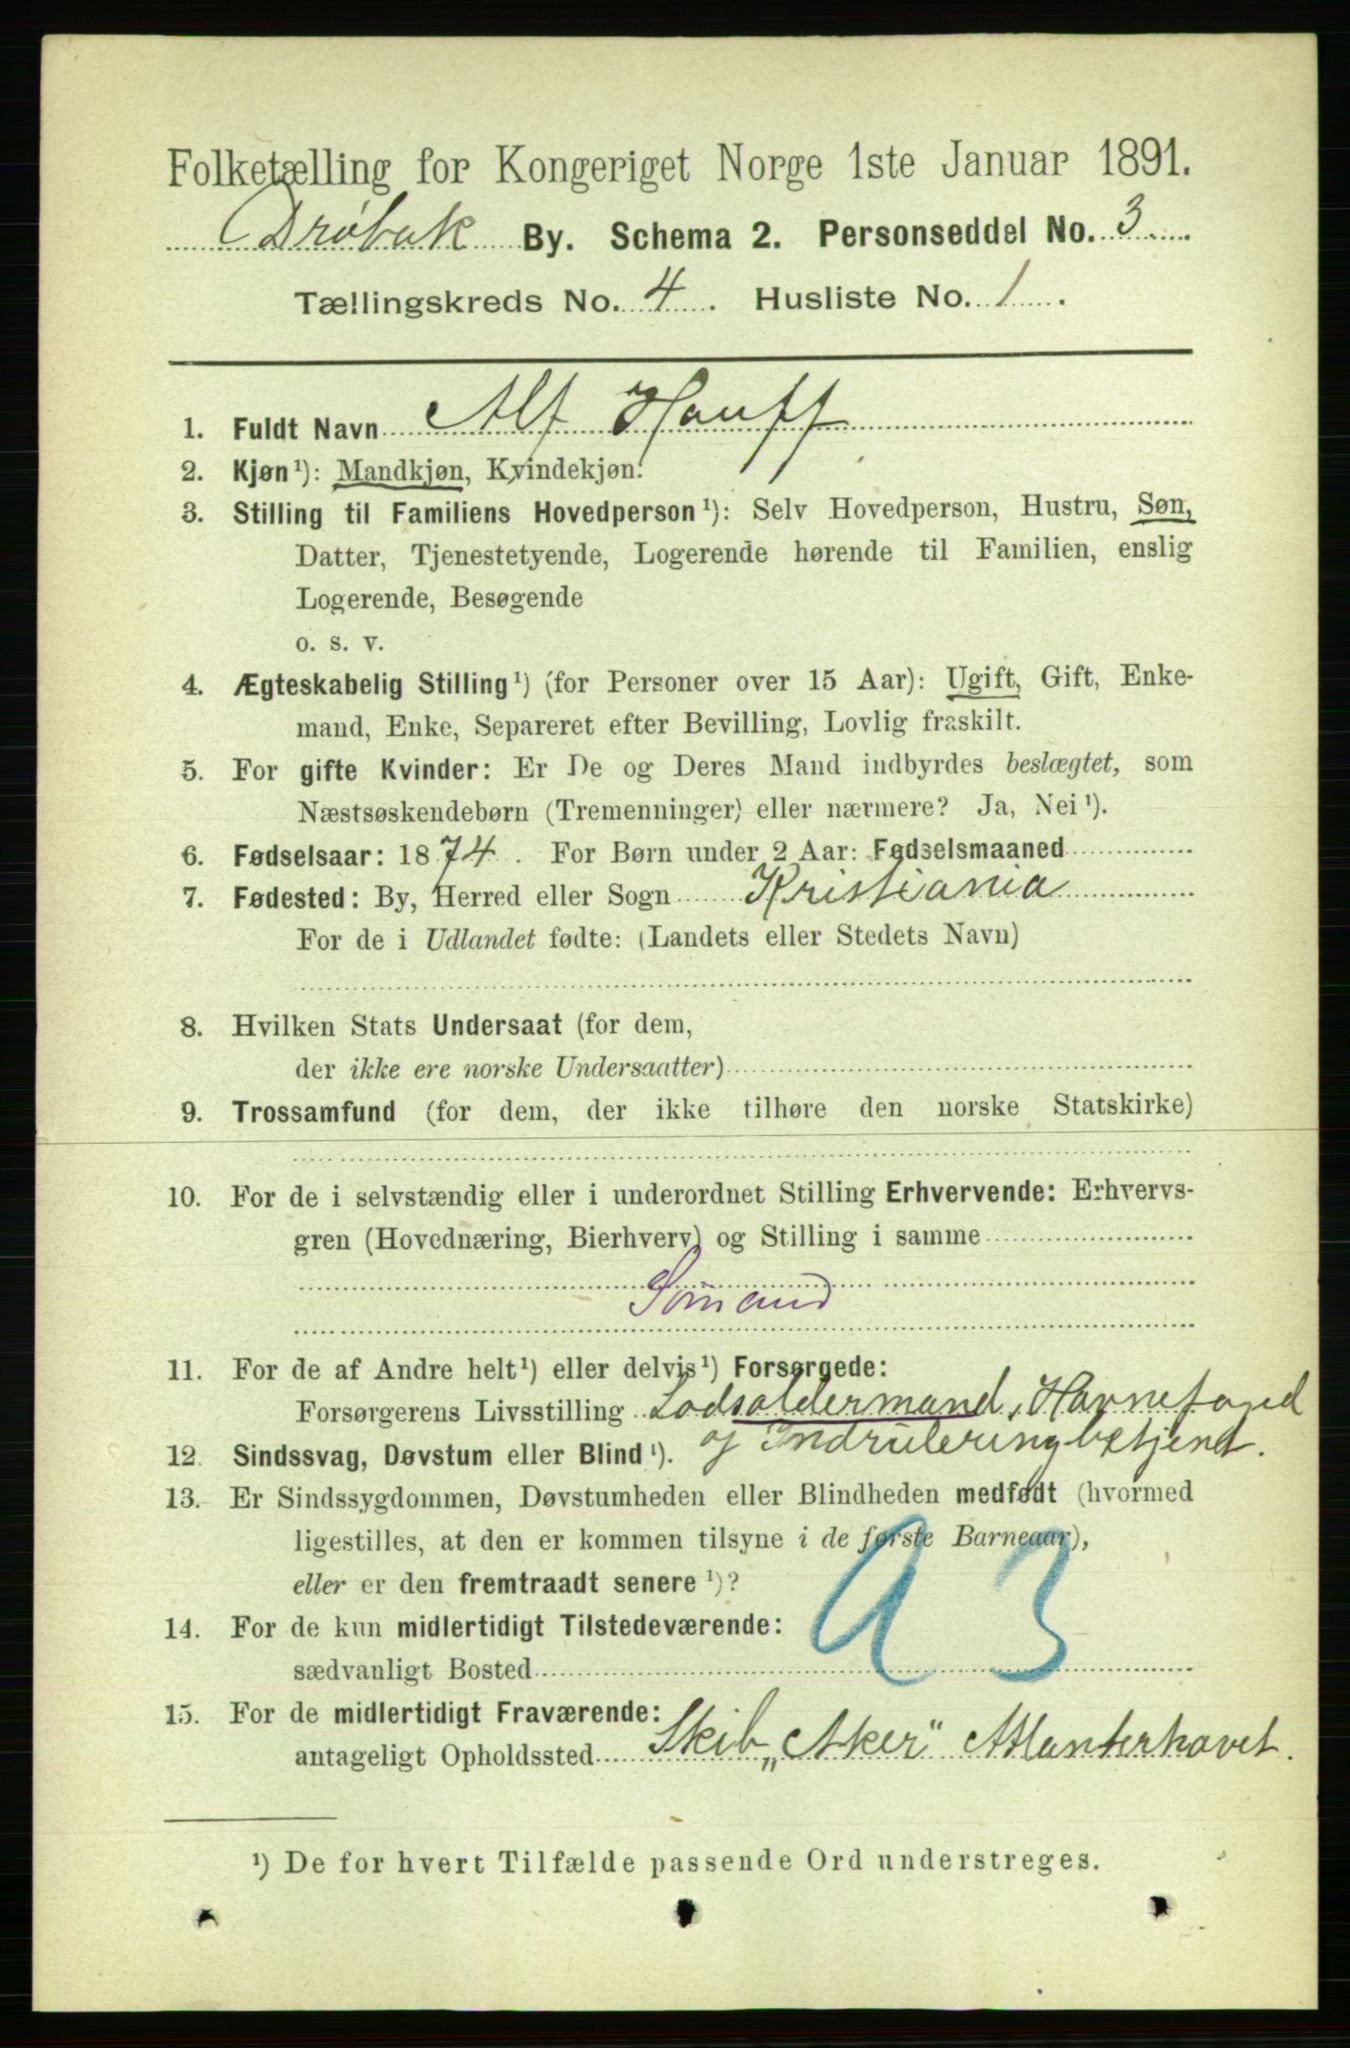 Folketælling for Kongeriget Norge 1ste Januar 1891.
Drøbak By. Schema 2. Personseddel No. 3
Tællingskreds No. 4. Husliste No. 1.
1. Fuldt Navn Alf Hauff
2. Kjøn¹): Mandkjøn, Kvindekjøn.
3. Stilling til Familiens Hovedperson¹): Selv Hovedperson, Hustru, Søn,
Datter, Tjenestetyende, Logerende hørende til Familien, enslig
Logerende, Besøgende
o. s. v.
4. Ægteskabelig Stilling¹) (for Personer over 15 Aar): Ugift, Gift, Enke-
mand, Enke, Separeret efter Bevilling, Lovlig fraskilt.
5. For gifte Kvinder: Er De og Deres Mand indbyrdes beslægtet, som
Næstsøskendebørn (Tremenninger) eller nærmere? Ja, Nei¹).
6. Fødselsaar: 1874. For Børn under 2 Aar: Fødselsmaaned
7. Fødested: By, Herred eller Sogn Kristiania
For de i Udlandet fødte: (Landets eller Stedets Navn)
8. Hvilken Stats Undersaat (for dem,
der ikke ere norske Undersaatter)
9. Trossamfund (for dem, der ikke tilhøre den norske Statskirke)
10. For de i selvstændig eller i underordnet Stilling Erhvervende: Erhvervs-
gren (Hovednæring, Bierhverv) og Stilling i samme
Sömand
11. For de af Andre helt¹) eller delvis¹) Forsørgede:
Forsørgerens Livsstilling Lodsoldermand, Havnefoged
og Indrulleringbetjent.
12. Sindssvag, Døvstum eller Blind¹).
13. Er Sindssygdommen, Døvstumheden eller Blindheden medfødt (hvormed
ligestilles, at den er kommen tilsyne i de første Barneaar),
eller er den fremtraadt senere¹)?
93
14. For de kun midlertidigt Tilstedeværende:
sædvanligt Bosted
15. For de midlertidigt Fraværende:
antageligt Opholdssted Skib „Aker" Atlanterhavet.
¹) De for hvert Tilfælde passende Ord understreges.